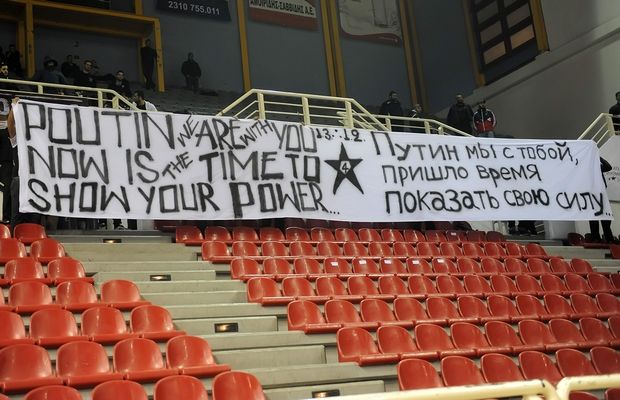 2310 755.011
ΑΜΟΙΡΙΔΗΣ-ΣΑΒΒΙΔΗΣ Α.Ε.
POUTIN WE ARE WITH YOU
NOW IS THE TIME TO
SHOW YOUR POWER...
13.12.
4
Путин мы с тобой,
пришло время
показать свою силу...